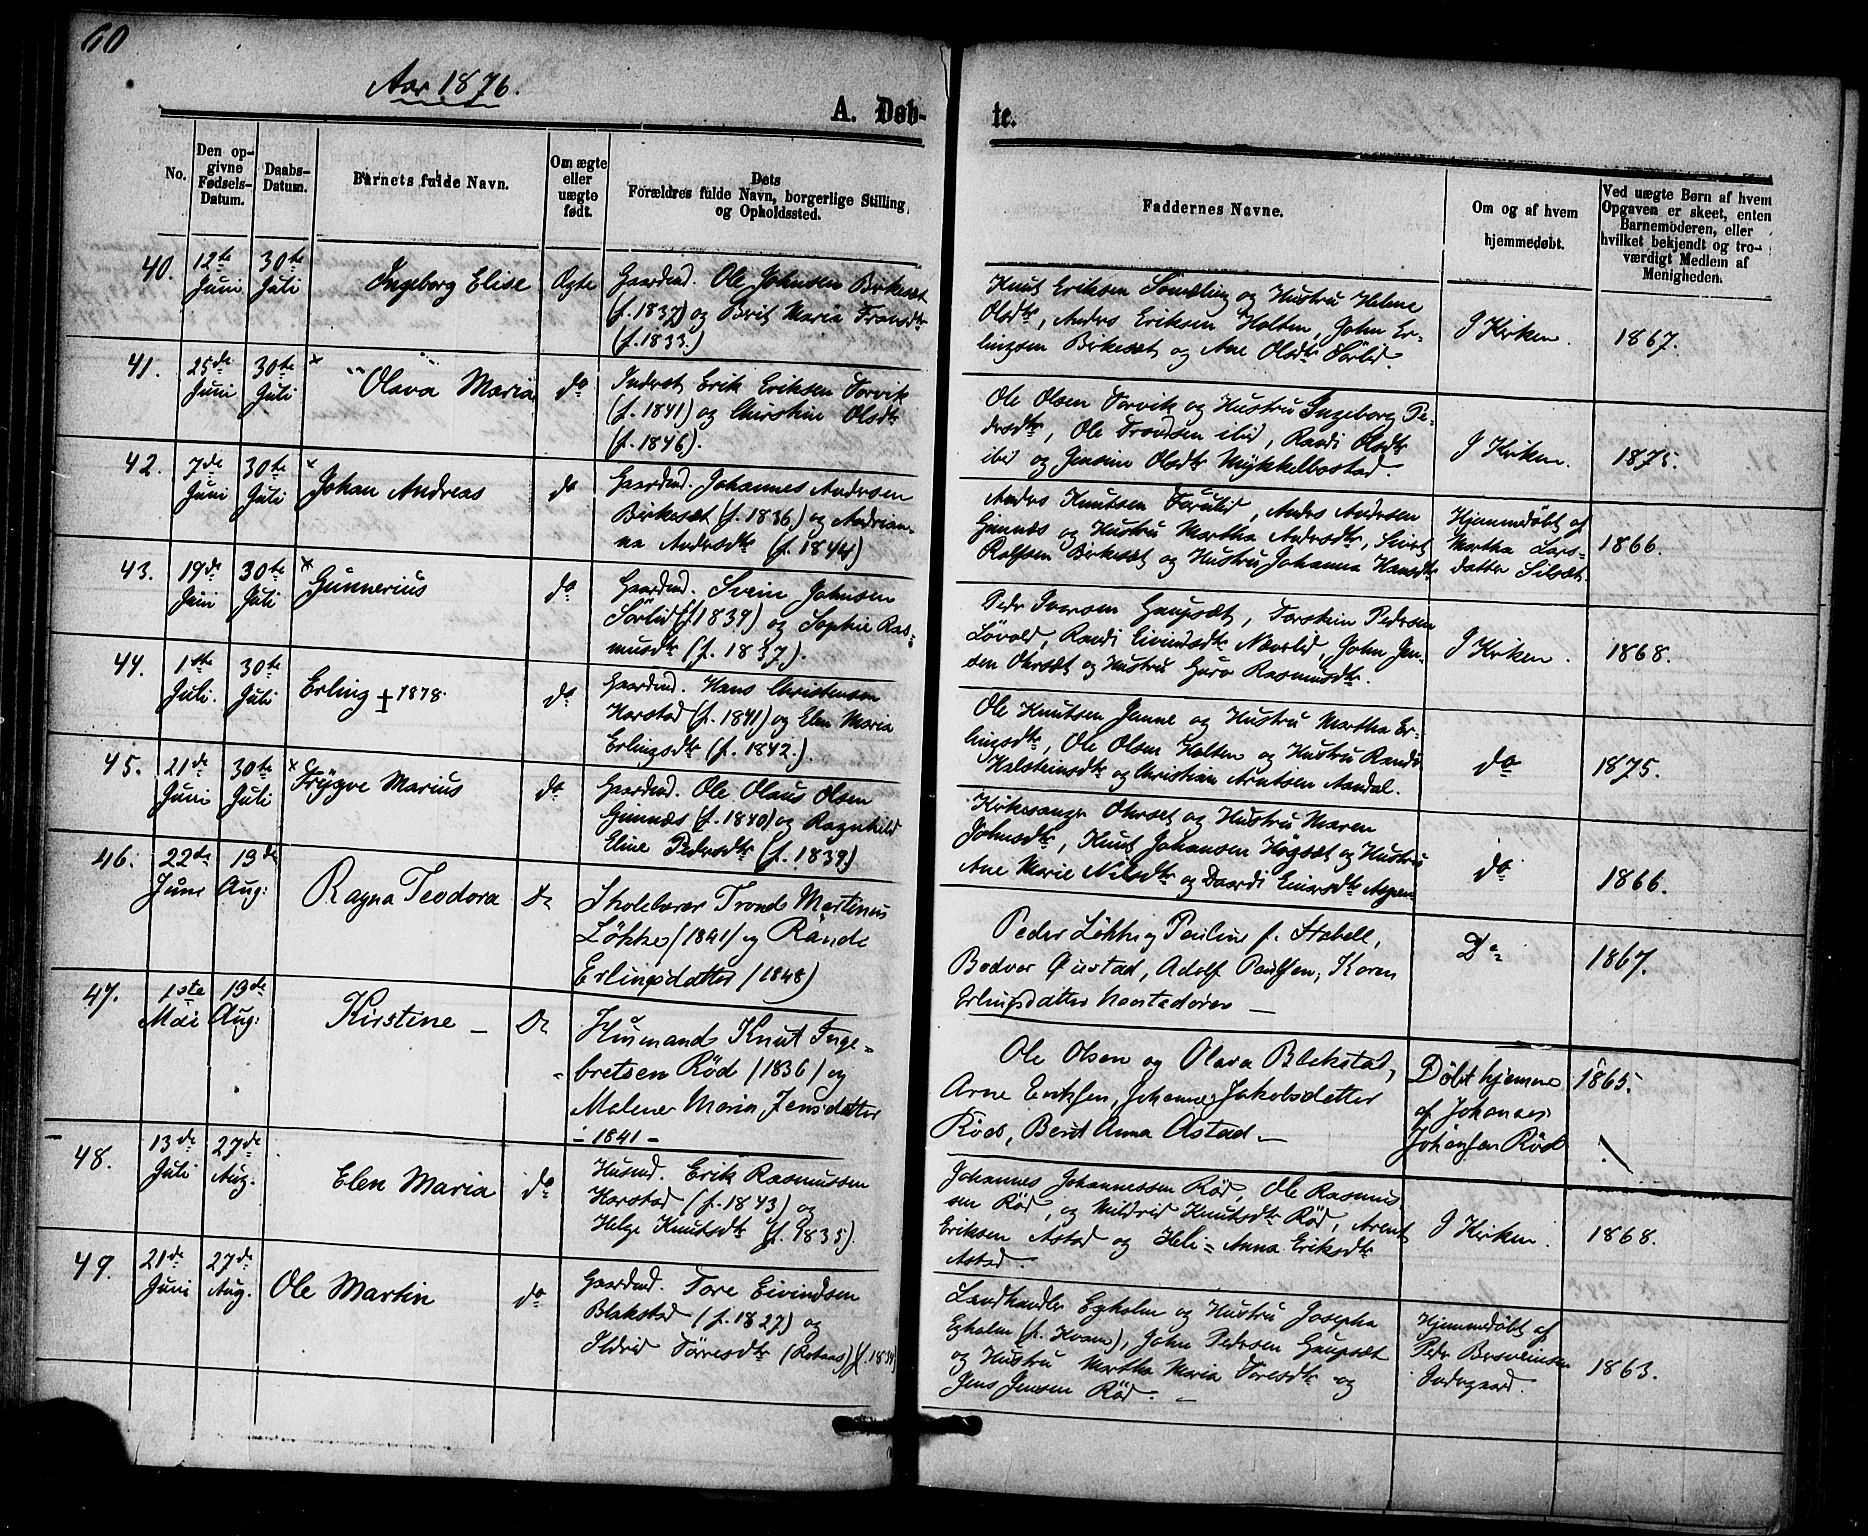 60
Aar 1876.
A. Døb-
te.
No.
Den op-
givne
Fødsels-
Datum.
Daabs-
Datum.
Barnets fulde Navn.
Om ægte
eller
uægte
født.
Dets
Forældres fulde Navn, borgerlige Stilling
og Opholdssted.
Faddernes Navne.
Om og af hvem
hjemmedøbt.
Ved uægte Børn af hvem
Opgaven er skeet, enten
Barnemoderen, eller
hvilket bekjendt og tro-
værdigt Medlem af
Menigheden.
40.
12te
Juni
30te
Juli
Ingeborg Elise
Ægte
Gaardmd. Ole Johnsen Birkesæt
(f. 1837) og Berit Maria Trondsdtr
(f. 1833.)
Knut Eriksen Sandling og Hustru Helene
Olsdtr, Anders Eriksen Holten, John Er-
lingsen Birkesæt og Ane Olsdtr Sørlid.
I Kirken.
1867.
41.
25de
Juni
30te
Juli
Olava Maria
do
Inderst Erik Eriksen Torvik
(f. 1841) og Chirstine Olsdtr
(f. 1846).
Ole Olsen Torvik og Hustru Ingeborg Pe-
dersdtr, Ole Trondsen ibid, Randi Olsdtr
ibid og Jensine Olsdtr Mykkelbostad.
I Kirken.
1875.
42.
7de
Juni
30te
Juli
Johan Andreas
do
Gaardmd. Johannes Andersen
Birkesæt (f. 1836.) og Andrian-
na Andersdtr (f. 1844)
Anders Knutsen Furulid, Anders Andersen
Gimnæs og Hustru Martha Andersdtr, Sivert
Rolfsen Birkesæt og Hustru Johanna Hansdtr
Hjemmedøbt af
Martha Lars-
datter Silsæt.
1866.
43.
19de
Juni
30te
Juli
Gunnerius
do
Gaardmd. Svein Johnsen
Sörlid (f. 1839) og Sophie Ras-
musdtr (f. 1837).
Peder Iversen Gaupsæt, Torstein Pedersen
Løvold, Randi Eivindsdtr Nærlid, John Jen-
sen Ohrsæt og Hustru Guro Rasmusdtr.
I Kirken.
1868.
44.
1ste
Juli.
30te
Juli
Erling † 1878.
do
Gaardmd. Hans Christensen
Harstad (f. 1841) og Elen Maria
Erlingsdtr (f. 1842.)
Ole Knutsen Jenne og Hustru Martha Er-
lingsdtr, Ole Olsen Holten og Hustru Randi
Halsteinsdtr og Christian Arntsen Aandal.
do
1875.
45.
21de
Juni
30te
Juli
Trygve Marius
do
Gaardmd. Ole Olaus Olsen
Gimnæs (f. 1840) og Ragnhild
Eline Pedersdtr (f. 1839.)
Kirkesanger Ohrset og Hustru Maren
Johnsdtr, Knut Johansen Høgsæt og Hustru
Ane Marie Nilsdtr og Daardi Einarsdtr Aspen
do
1866.
46.
22de
Juni
13de
Aug:
Ragna Teodora
Do
Skolelærer Trond Martinus
Løkke (1841) og Rande
Erlingsdatter (1848)
Peder Løkke og Pauline f. Stabell,
Bodvar Øustad, Adolf Paulsen, Karen
Erlingsdatter Naastadøren —
Do
1867.
47.
1ste
Mai
13de
Aug:
Kirstine —
Do
Husmands Knut Inge-
bretsen Rød (1836) og
Malene Maria Jensdatter
- 1841 -
Ole Olsen og Olava Blekstad,
Arne Eriksen, Johanne Jakobsdatter
Röed, Berit Anna Astad —
Døbt hjemme
af Johannes
Johansen Rød
1865.
48.
13de
Juli
27de
Aug.
Elen Maria
do
Husmd. Erik Rasmussen
Harstad (f. 1843) og
Helge Knutsdtr (f. 1835).
Johannes Johannessen Rød, Ole Rasmus
sen Rød, og Mildrid Knutsdtr Rød, Arent
Eriksen Astad og Heli = Anna Eriksdtr
Astad.
I Kirken.
1868.
49.
21de
Juni
27de
Aug.
Ole Martin
do
Gaardmd. Tore Eivindsen
Blakstad (f. 1827) og
Ildrid Törresdtr (Rotaas) (f. 1834)
Landhandler Egholm og Hustru Josepha
Egholm (f. Kvam), John Pedersen Gaupsæt
og Hustru Martha Maria Toresdtr og
Jens Jensen Rød. —
Hjemmedøbt af
Peder Bersveinsen
Indegaard.
1863.